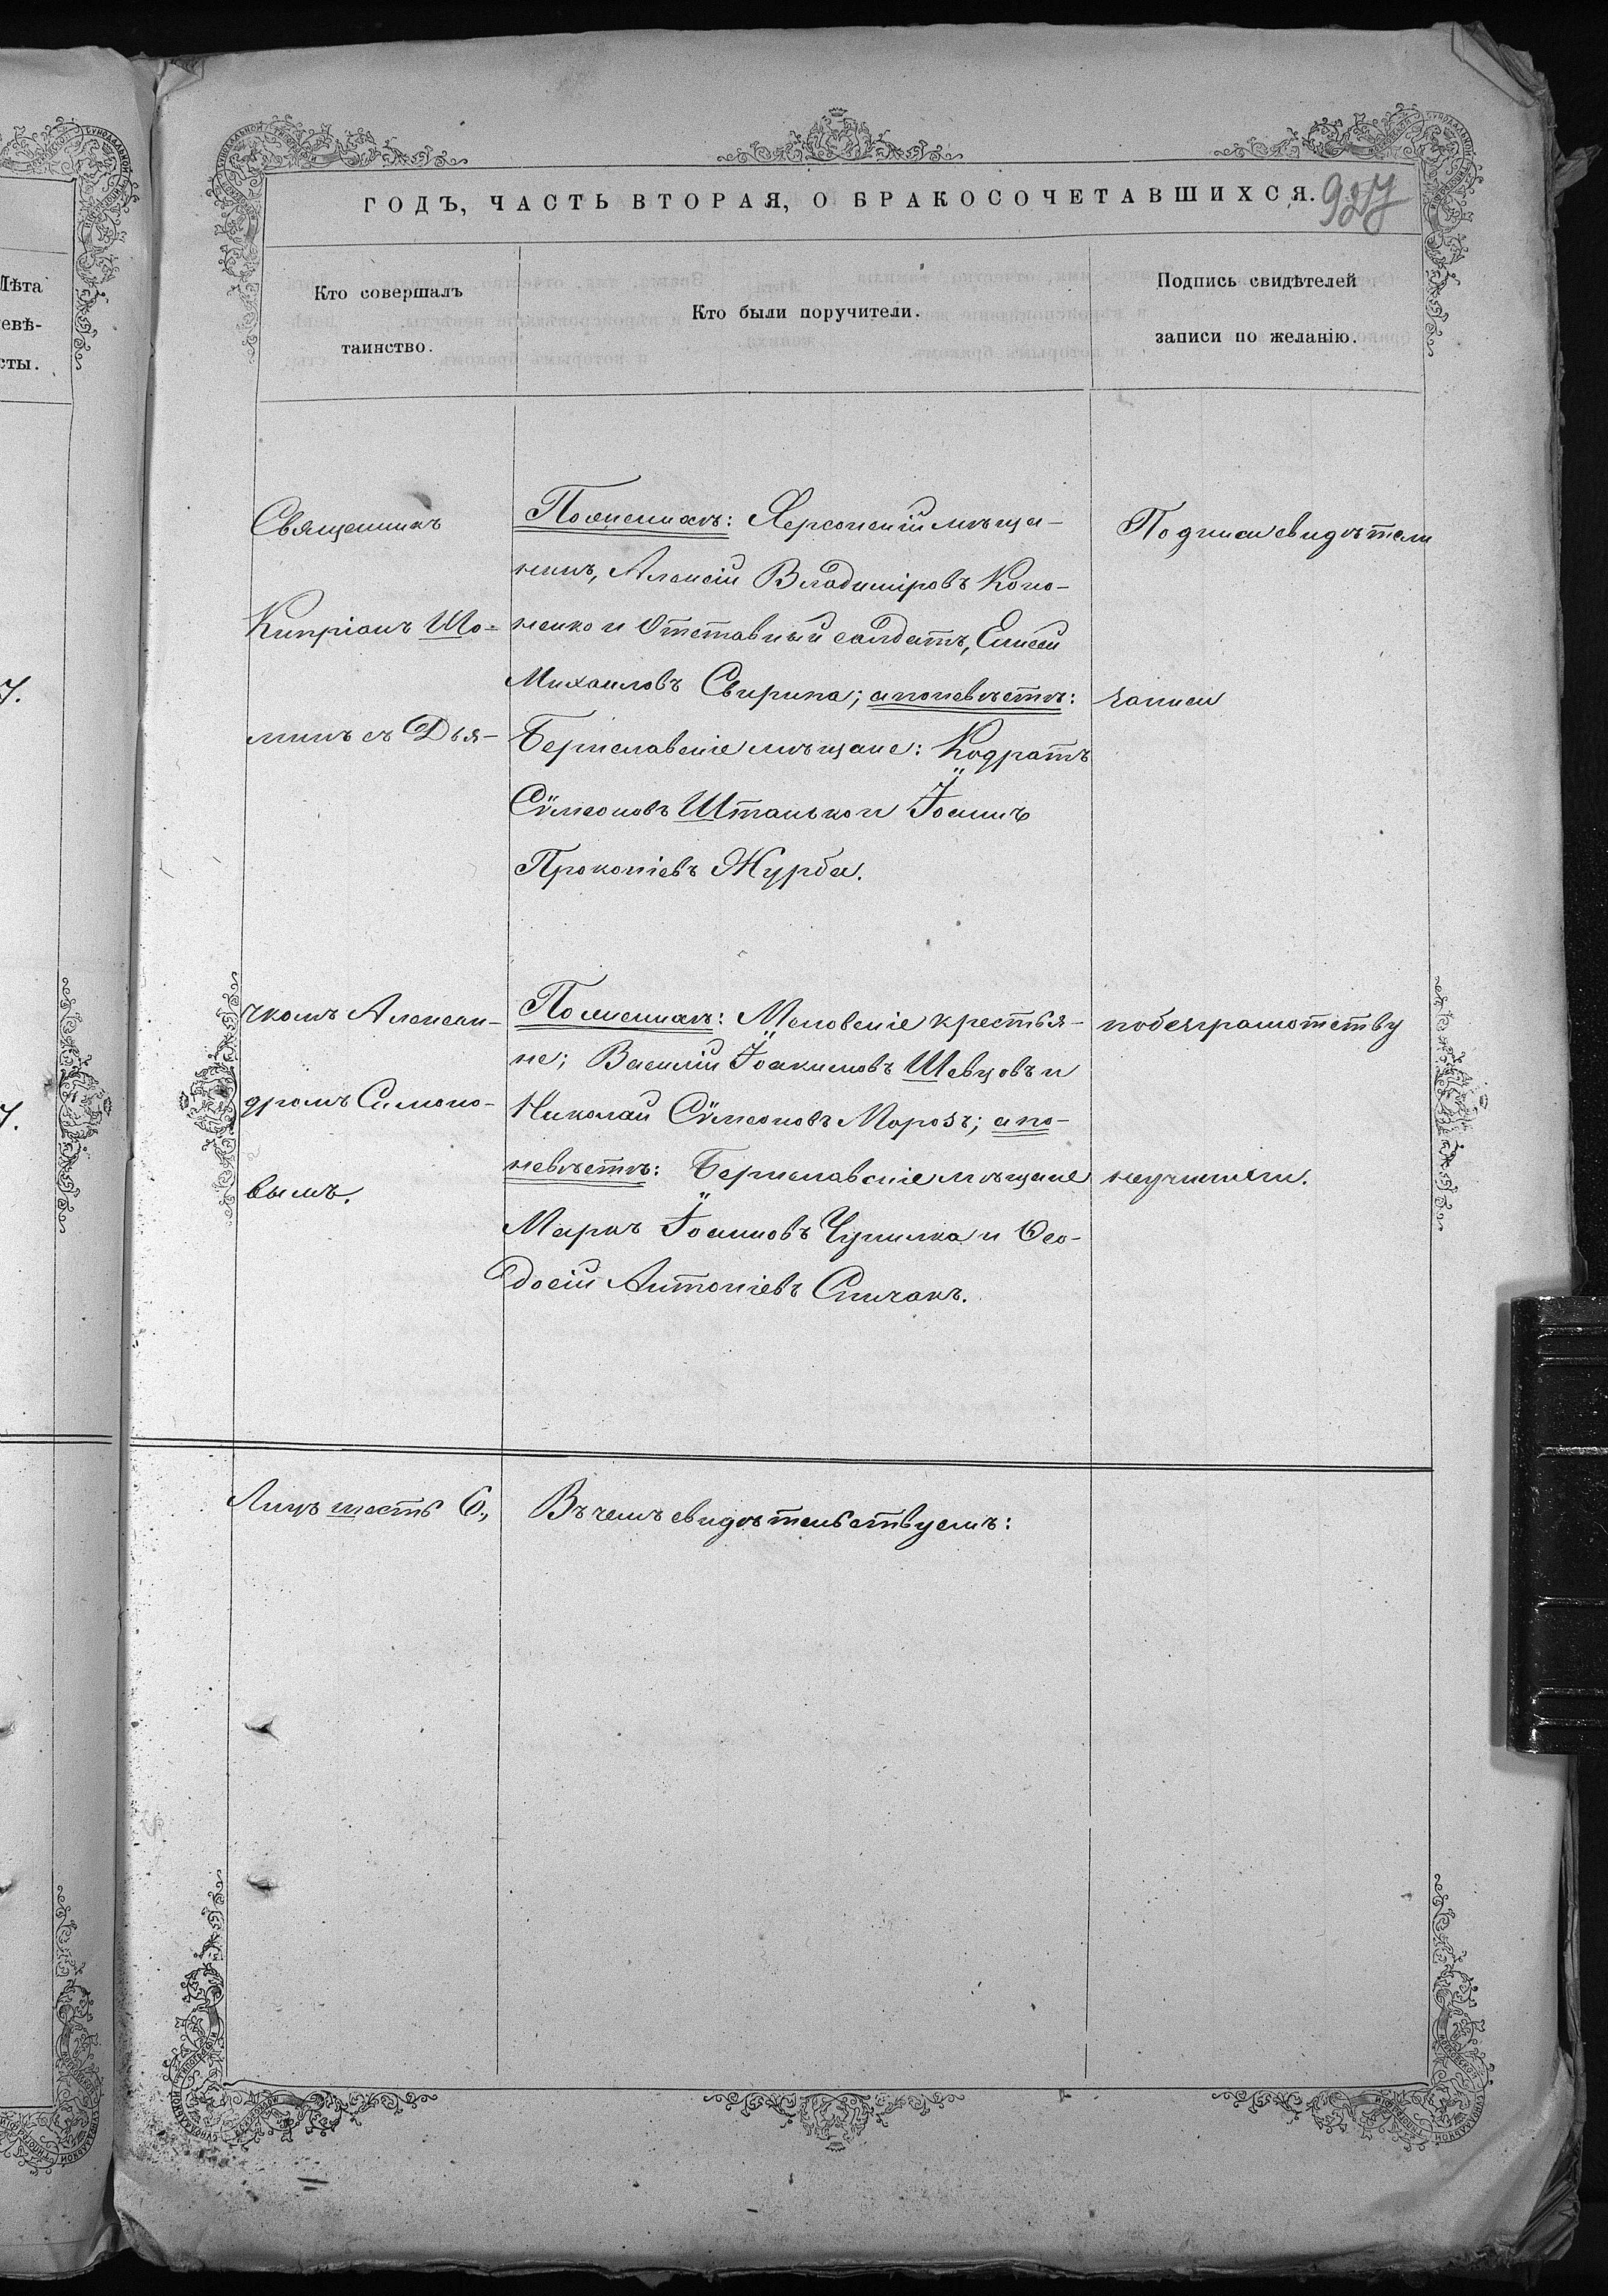 ГОДЪ, ЧАСТЬ ВТОРАЯ, О БРАКОСОЧЕТАВШИХСЯ.
927
Кто совершалъ
таинство.
Кто были поручители.
Подпись свидѣтелей
записи по желанію.
Лѣта
невѣ-
сты.
Священникъ
Кипріанъ Шо-
минъ съ Дья-
чкомъ Алексан-
дромъ Симоно-
вымъ.
По женихѣ: Херсонскій мѣща-
нинъ, Алексій Владиміровъ Коно-
ненко и Отставный солдатъ, Елисей
Михаиловъ Свирипа; а по невѣстѣ:
Бериславскіе мѣщане: Кодратъ
Сѵмеоновъ Штанько и Іоаннъ
Прокопіевъ Журба.
По женихѣ: Меловскіе крестья-
не; Василій Іоакимовъ Шевцовъ и
Николай Сѵмеоновъ Морозъ; а по
невѣстѣ: Бериславскіе мѣщане
Маркъ Іоанновъ Чупилка и Ѳео-
досій Антоніевъ Спичакъ.
Подписи свидѣтели
записи
по безграмотству
неучинили.
Лицъ шесть 6.,
Въ чемъ свидѣтельствуемъ: